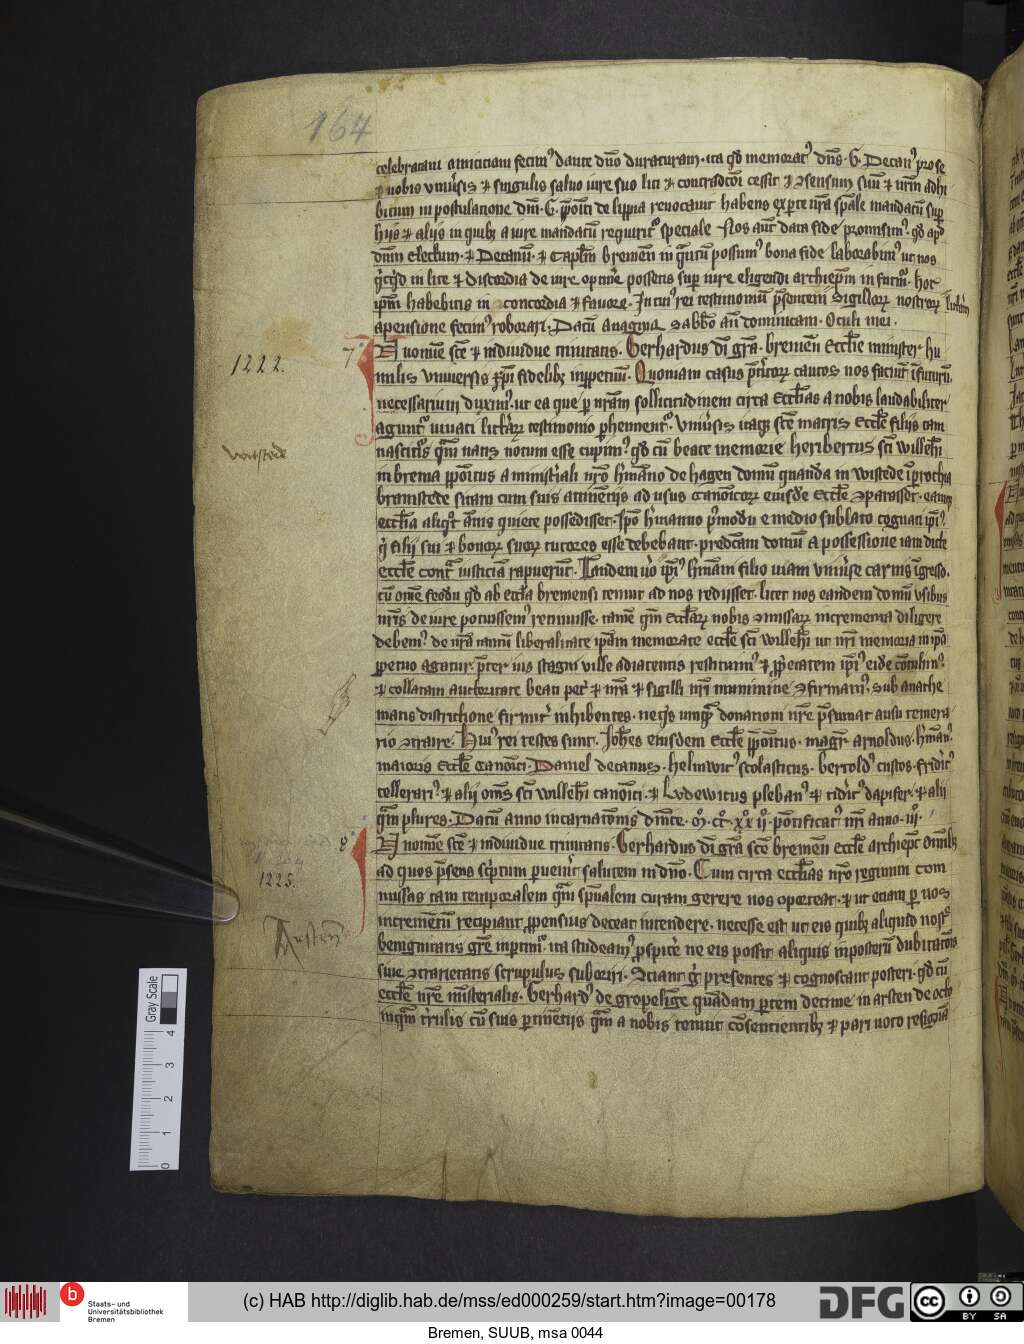 164
celebratam amiciciam fecim' dante dno duraturam. ita qd memorat' dns. G. Decan' pro se
p nobis vniusis et singulis saluo iure suo liti et contradcoi cessit et 9sensum suu et nrm adhi
bitum in postulatione dni. G. ppoiti de lippia reuocauit habens ex parte nra spale mandatu sup
hiis et aliis in quib; a iure mandatu requirit' speciale Nos aut data fide promisim'. qd
dnm electum. et Decanu. et Caplm bremen in quctu possum' bona fide laborabim' ut nos
in lite et discordia de iure optine possetis sup iure eligendi archiepm in futur. hoc
ipm habebitis in concordia et fauore. In cui' rei testimoniu psentem sigillor nostror
apensione fecim' roborari. Datu sabbo an dominicam. Oculi mei.
1222.
7
N nomine sce et indiuidue trinitatis. Gerhardus di gra. bremen ecclie minister hu
milis vniuersis xpi fidelib; inppetuu. Quoniam casus pteritor cautos nos faciut i futuru.
necessarium duxim'. ut ea que p nram sollicitudinem circa ecclias a nobis laudabiliter
agunt' uiuaci littar testimonio phennent'. Vniusis itaq; sce matris eccle filiis tam
nascituris qm natis notum esse cupim'. qd cu beate memorie heribertus sci willehi
worstede
in brema ppoitus a ministiali nro hmano de hagen domu quanda in wistede i prochia
bramstede sitam cum suis attinetiis ad usus canoicor eiusde eccle 9parasset. eamq;
ecclia aliqt annis quiete possedisset. Ipo hmanno pmodu e medio sublato cognati ipi'.
q filii sui et bonor suor tutores esse debebant. predcam domu a possessione iam dicte
eccle cont' iusticia rapuerunt. Tandem uo ipi' hmani filio uiam vniuse carnis igresso.
cu omne feodu qd ab eccla bremensi tenuit ad nos redisset. licet nos eandem domu usibus
nris de iure potuissem' retinuisse. tame qm ecclar nobis 9missar incrementa diligere
debem'. de nra tamen liberalitate ipam memorate eccle sci willehi ut nri memoria in ipa
ppetuo agatur. preter ius stagni ville adiacentis restituim' et
et collatam auctoritate beati pet' et nra et sigilli nri munimine 9firmam'. sub anathe
matis districtione firmit' inhibentes. neqs umqm donationi nre psumat ausu temera
rio 9traire. Hui' rei testes sunt. Johes eiusdem eccle ppoitus. magr arnoldus. hman'.
maioris eccle canoici. Daniel decanus. helmwic' scolasticus. bertold' custos. fridic'
cellerari'. et alii oms sci willehi canoici. et Ludewicus pleban' et tidic' dapifer. et alii
qm plures. Datu anno incarnatonis dnice. M. CC. XX II. pontificat' nri anno. III.
8
N nomine sce et indiuidue trinitatis. Gerhardus di gra sce bremen eccle archiepc omib;
1225.
ad quos psens sciptum puenit salutem in dno. Cum circa ecclias nro regimini com
missas tam temporalem qm spualem curam gerere nos oporteat. et ut etiam p nos
Arsten
incrementu recipiant ppensius deceat intendere. necesse est ut eis quib; aliquid nost'
benignitatis gre inptim'. ita studeam' pspice ne eis possit aliquis inposteru dubitatois
siue 9trarietatis scrupulus suboriri. Sciant g presentes et cognoscant posteri. qd cu
eccle nre misterialis. Gerhard' de gropelinge quadam ptem decime in arsten de octo
titulis cu suis ptinetiis qm a nobis tenuit cosentientib; et pari uoto resigna
Gray Scale
0 1 2 3 4
b
Staats- und
Universitätsbibliothek
Bremen
(c) HAB http://diglib.hab.de/mss/ed000259/start.htm?image=00178
DFG
cc BY SA
Bremen, SUUB, msa 0044